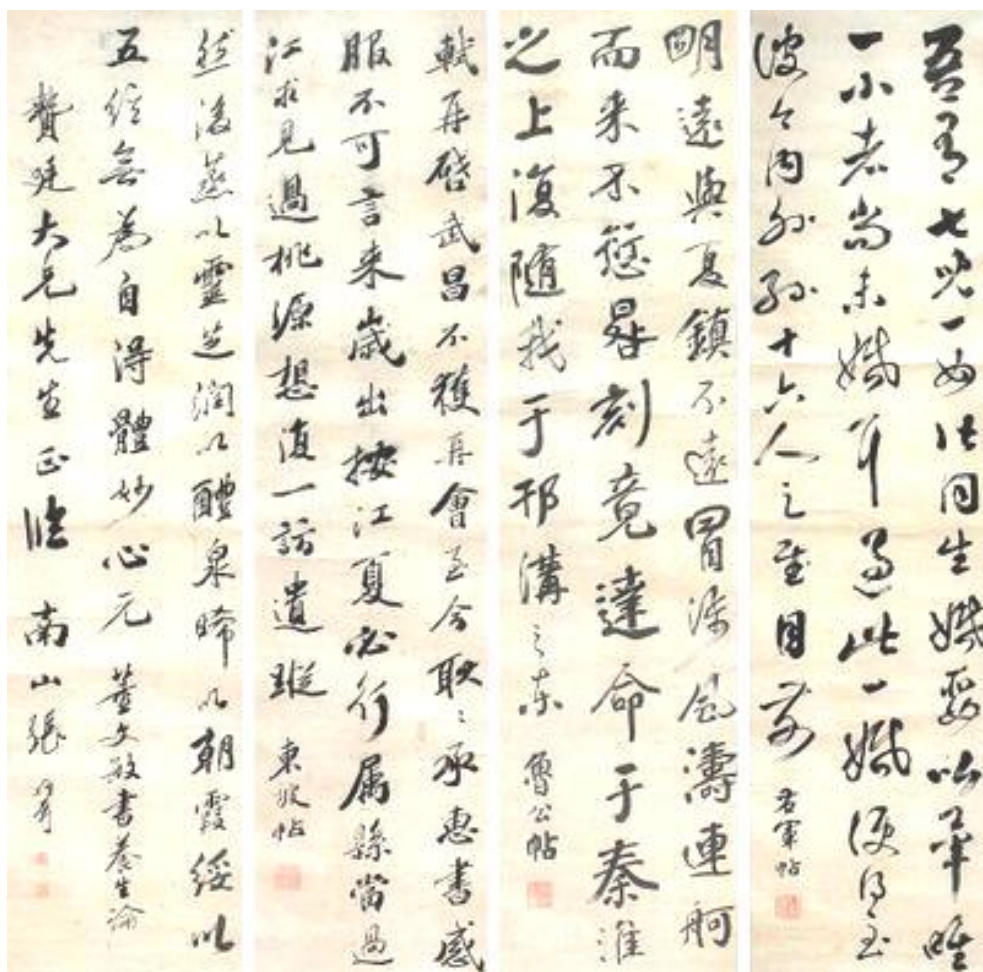 吾有七兒一女皆同生婚娶以畢唯
一小者尚未婚耳過此一婚便得至
彼今內外孫十六人足慰目前 右軍帖
明遠與夏鎮不遠冒涉風濤連舸
而来不愆晷刻竟達命于秦淮
之上復隨我于邗溝之東 魯公帖
軾再啓武昌不獲再會至今耿〻承惠書感
服不可言来歲出按江夏必行属縣當過
江求見過桃源想復一訪遺蹤 東坡帖
然後蒸以靈芝潤以醴泉晞以朝霞綏以
五絃無為自得體妙心元 董文敏書養生論
贊廷大兄先生正臨 南山張